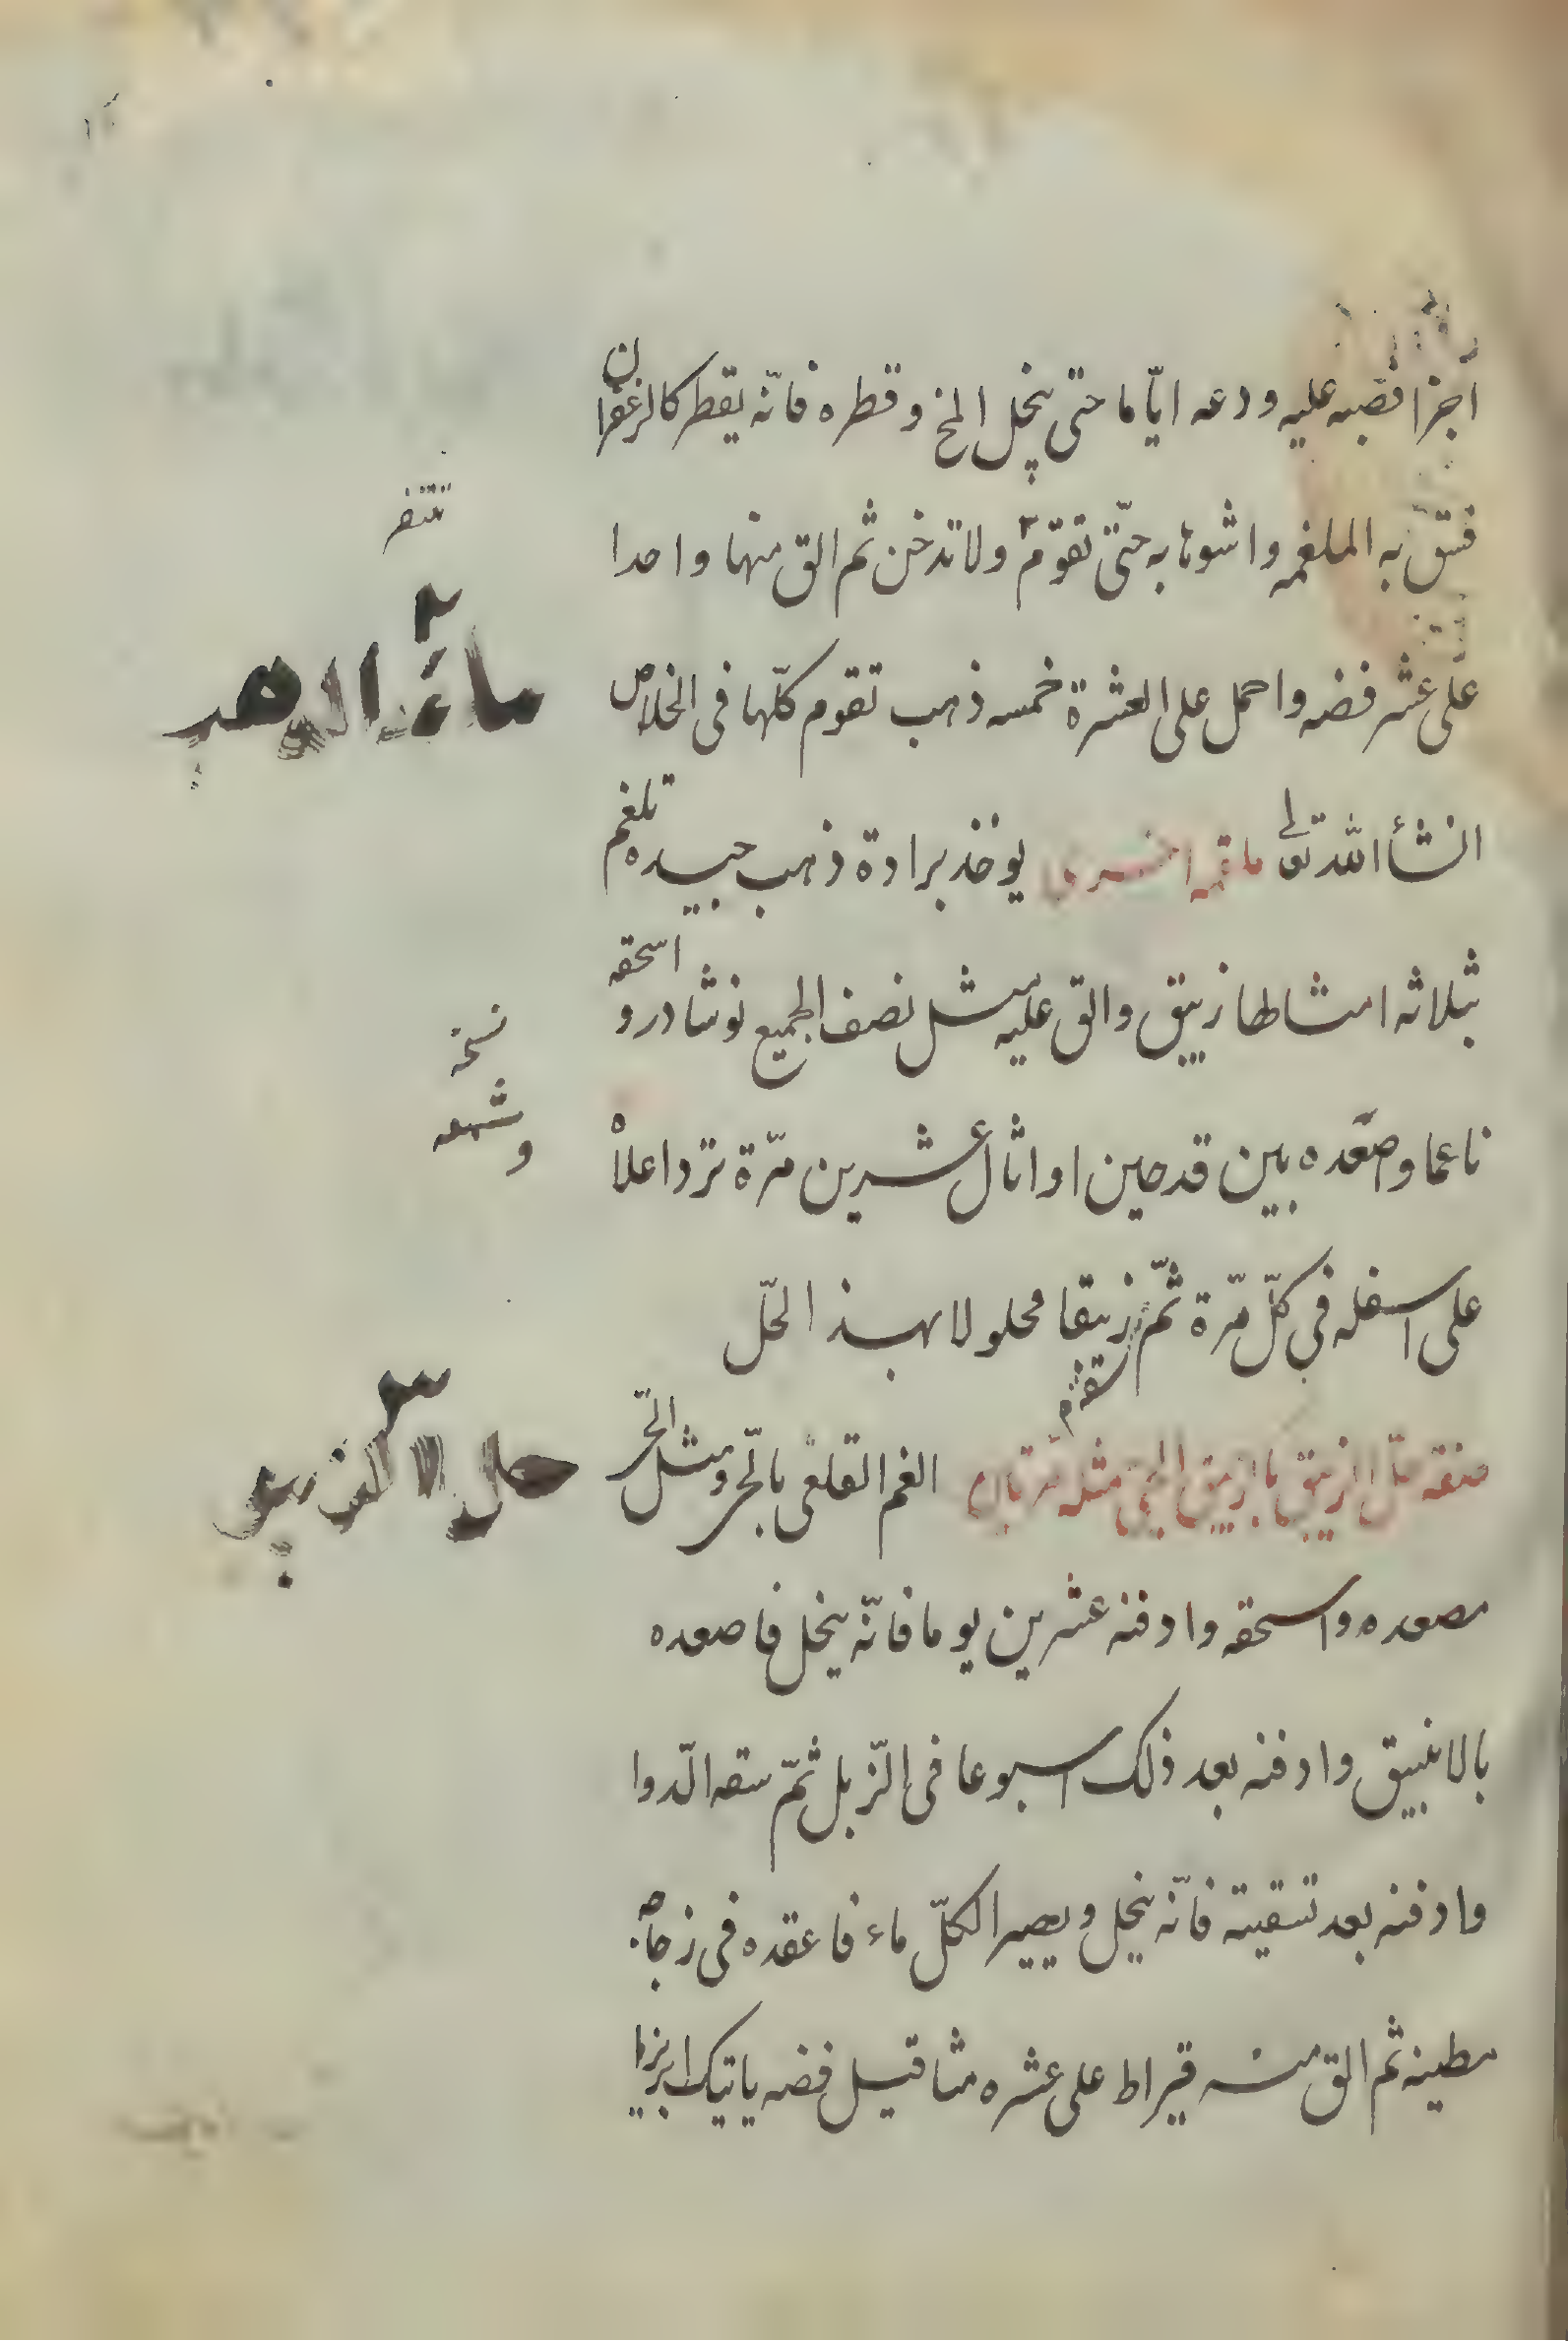 اجزا فصّبه عليه ودعه ايّاما حتى ينحل المخ وقطره فانّه يقطر كالزعفران
فسق به الملغمه واشوها به حتّى تقوّم ولا تدخن ثم الق منها واحدا
على عشر فضه واحمل على العشرة خمسه ذهب تقوم كلّها فى الخلاص
انشأ الله تعالى يوخذ برادة ذهب جيده تلغم
بثلاثه امثالها زيبق والق عليه مثل نصف الجميع نوشادر واسحقه
ناعما وصعّده بين قدحين او اثال عشرين مّرة ترد اعلاه
على اسفله في كلّ مّرة ثمّ زيبقا محلولا بهذا الحلّ
الغم القلعى بالحّر ومثل الحّر
مصعده واسحقه وادفنه عشرين يوما فانّه ينحل فاصعده
بالانبيق وادفنه بعد ذلك اسبوعا فى الزّبل ثمّ سقه الدّوا
وادفنه بعد تسقيته فانّه ينحل ويصير الكلّ ماء فاعقده فى زجاجه
مطينه ثم الق منه قيراط على عشره مثاقيل فضه ياتيك ابريزا
ماء الذهب
نسخه
وشمعه